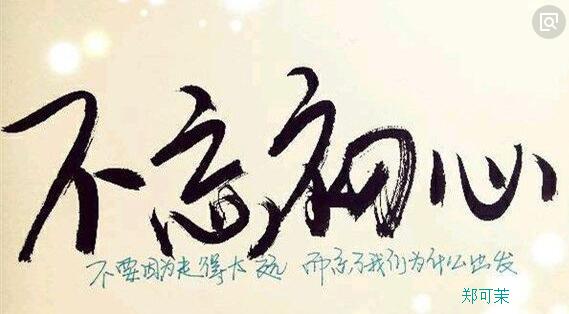 不忘初心
不要因为走得太远 而忘了我们为什么出发
郑可茉